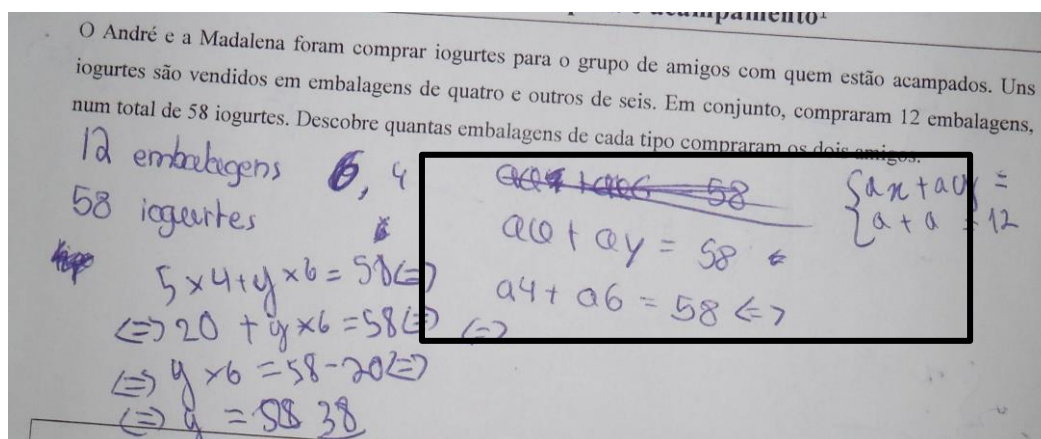 acampamento¹
O André e a Madalena foram comprar iogurtes para o grupo de amigos com quem estão acampados. Uns
iogurtes são vendidos em embalagens de quatro e outros de seis. Em conjunto, compraram 12 embalagens,
num total de 58 iogurtes. Descobre quantas embalagens de cada tipo compraram os dois amigos.
12 embalagens 6, 4
58 iogurtes
5 x 4 + y x 6 = 58 (=)
(=) 20 + y x 6 = 58 (=)
(=) y x 6 = 58 - 20 (=)
(=) y = 38
58
+ ay = 58
a4 + a6 = 58 <=>
<=>
{ax + ay =
{a + a = 12